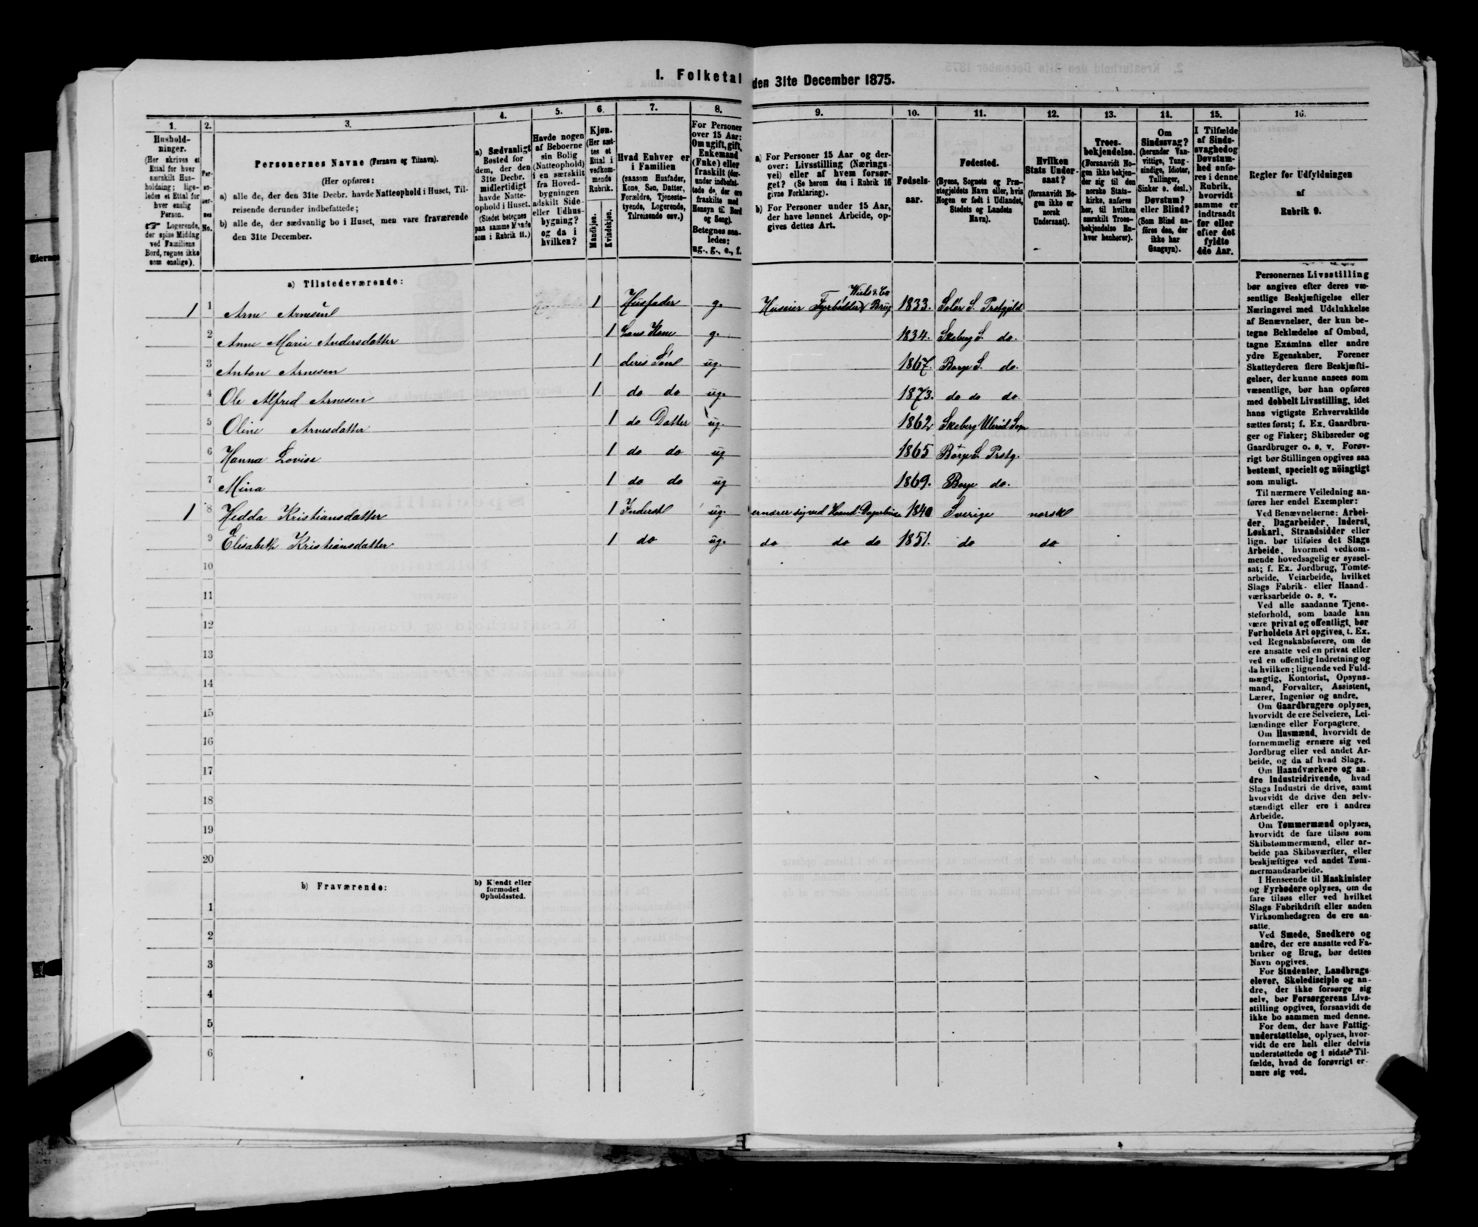 I. Folketal den 31te December 1875.
1. 2. 3. 4. 5. 6. 7. 8. 9. 10. 11. 12. 13. 14. 15. 16.
Hushold-
ninger.
(Her skrives et
Ettal for hver
særskilt Hus-
holdning; lige-
ledes et Ettal for
hver enslig
Person.
☞ Logerende,
der spise Middag
ved Familiens
Bord, regnes ikke
som enslige).
No.
Personernes Navne (Fornavn og Tilnavn).
(Her opføres:
a) alle de, der den 31te Decbr. havde Natteophold i Huset, Til-
reisende derunder indbefattede;
b) alle de, der sædvanlig bo i Huset, men vare fraværende
den 31te December.
a) Sædvanligt
Bosted for
dem, der den
31te Decbr.
midlertidigt
havde Natte-
ophold i Huset.
(Stedet betegnes
paa samme Maade
som i Rubrik 11.)
Havde nogen
af Beboerne
sin Bolig
(Natteophold)
i en særskilt
fra Hoved-
bygningen
adskilt Side-
eller Udhus-
bygning?
og da i
hvilken?
Kjøn.
(Her sæt-
tes et
Ettal i
vedkom-
mende
Rubrik.
Mandkjøn.
Kvindekjøn.
Hvad Enhver er
i Familien
(saasom Husfader,
Kone, Søn, Datter,
Forældre, Tjeneste-
tyende, Logerende,
Tilreisende osv.)
For Personer
over 15 Aar:
Om ugift, gift,
Enkemand
(Enke) eller
fraskilt (der-
under indbefat-
tede de, der ere
fraskilte med
Hensyn til Bord
og Seng).
Betegnes saa-
ledes:
ug., g., e., f.
a) For Personer 15 Aar og der-
over: Livsstilling (Nærings-
vei) eller af hvem forsør-
get? (Se herom den i Rubrik 16
givne Forklaring).
b) For Personer under 15 Aar,
der have lønnet Arbeide, op-
gives dettes Art.
Fødsels-
aar.
Fødested.
(Byens, Sognets og Præ-
stegjeldets Navn eller, hvis
Nogen er født i Udlandet,
Stedets og Landets
Navn).
Hvilken
Stats Under-
saat?
(forsaavidt No-
gen ikke er
norsk
Undersaat).
Troes-
bekjendelse.
(Forsaavidt No-
gen ikke bekjen-
der sig til den
norske Stats-
kirke, anføres
her, til hvilken
særskilt Troes-
bekjendelse En-
hver henhører).
Om
Sindssvag?
(herunder Van-
vittige, Tung-
sindige, Idioter,
Tullinger,
Sinker o. desl.)
Døvstum?
eller Blind?
(Som Blind an-
føres den, der
ikke har
Gangsyn).
I Tilfælde
af Sinds-
svaghed og
Døvstum-
hed anfø-
res i denne
Rubrik,
hvorvidt
samme er
indtraadt
før eller
efter det
fyldte
4de Aar.
Regler for Udfyldningen
af
Rubrik 9.
a) Tilstedeværende:
1 1 Arne Arnesøn 1 Husfader g. Husmier Fyrbødder Brug 1833. Solør S. Prstgjeld
2 Anne Marie Andersdatter 1 hans Kone g. 1834. Skeberg S. do.
3 Anton Arnesen 1 deres Søn ug. 1867. Borge S. do.
4 Ole Alfred Arnesen 1 do do ug. 1873. do do do
5 Oline Arnesdatter 1 do Datter ug. 1862 Skeberg
6 Hanna Lovise 1 do do ug 1865 Borge S. Prstg.
7 Mina 1 do do ug 1869. Borge do.
1 8 Hedda Kristiansdatter 1 Inderst ug. ernærer sig ved 1840 Sverige norsk
9 Elisabeth Kristiansdatter 1 do ug. do do do 1851. do do
10
11
12
13
14
15
16
17
18
19
20
b) Fraværende: b) Kjendt eller
formodet
Opholdssted.
1
2
3
4
5
6
Personernes Livsstilling
bør angives efter deres væ-
sentlige Beskjæftigelse eller
Næringsvei med Udelukkelse
af Benævnelser, der kun be-
tegne Beklædelse af Ombud,
tagne Examina eller andre
ydre Egenskaber. Forener
Skatteyderen flere Beskjæfti-
gelser, der kunne ansees som
væsentlige, bør han opføres
med dobbelt Livsstilling, idet
hans vigtigste Erhvervskilde
sættes først; f. Ex. Gaardbru-
ger og Fisker; Skibsreder og
Gaardbruger o. s. v. Forøv-
rigt bør Stillingen opgives saa
bestemt, specielt og nøiagtigt
som muligt.
Til nærmere Veiledning an-
føres her endel Exempler:
Ved Benævnelserne: Arbei-
der, Dagarbeider, Inderst,
Løskarl, Strandsidder eller
lign. bør tilføies det Slags
Arbeide, hvormed vedkom-
mende hovedsagelig er syssel-
sat; f. Ex. Jordbrug, Tomte-
arbeide, Veiarbeide, hvilket
Slags Fabrik- eller Haand-
værksarbeide o. s. v.
Ved alle saadanne Tjene-
steforhold, som baade kan
være privat og offentligt, bør
Forholdets Art opgives, t. Ex.
ved Regnskabsførere, om de
ere ansatte ved en privat eller
ved en offentlig Indretning og
da hvilken; lignende ved Fuld-
mægtig, Kontorist, Opsyns-
mand, Forvalter, Assistent,
Lærer, Ingeniør og andre.
Om Gaardbrugere oplyses,
hvorvidt de ere Selveiere, Lei-
lændinge eller Forpagtere.
Om Husmænd, hvorvidt de
fornemmelig ernære sig ved
Jordbrug eller ved andet Ar-
beide, og da af hvad Slags.
Om Haandværkere og an-
dre Industridrivende, hvad
Slags Industri de drive, samt
hvorvidt de drive den selv-
stændigt eller ere i andres
Arbeide.
Om Tømmermænd oplyses,
hvorvidt de fare tilsøs som
Skibstømmermænd, eller ar-
beide paa Skibsværfter, eller
beskjæftiges ved andet Tøm-
mermandsarbeide.
I Henseende til Maskinister
og Fyrbødere oplyses, om de
fare tilsøs eller ved hvilket
Slags Fabrikdrift eller anden
Virksomhedsgren de ere an-
satte.
Ved Smede, Snedkere og
andre, der ere ansatte ved Fa-
briker og Brug, bør dettes
Navn opgives.
For Studenter, Landbrugs-
elever, Skoledisciple og an-
dre, der ikke forsørge sig
selv, bør Forsørgerens Livs-
stilling opgives, forsaavidt de
ikke bo sammen med denne.
For dem, der have Fattig-
understøttelse, oplyses, hvor-
vidt de ere helt eller delvis
understøttede og i sidste Til-
fælde, hvad de forøvrigt er-
nære sig ved.